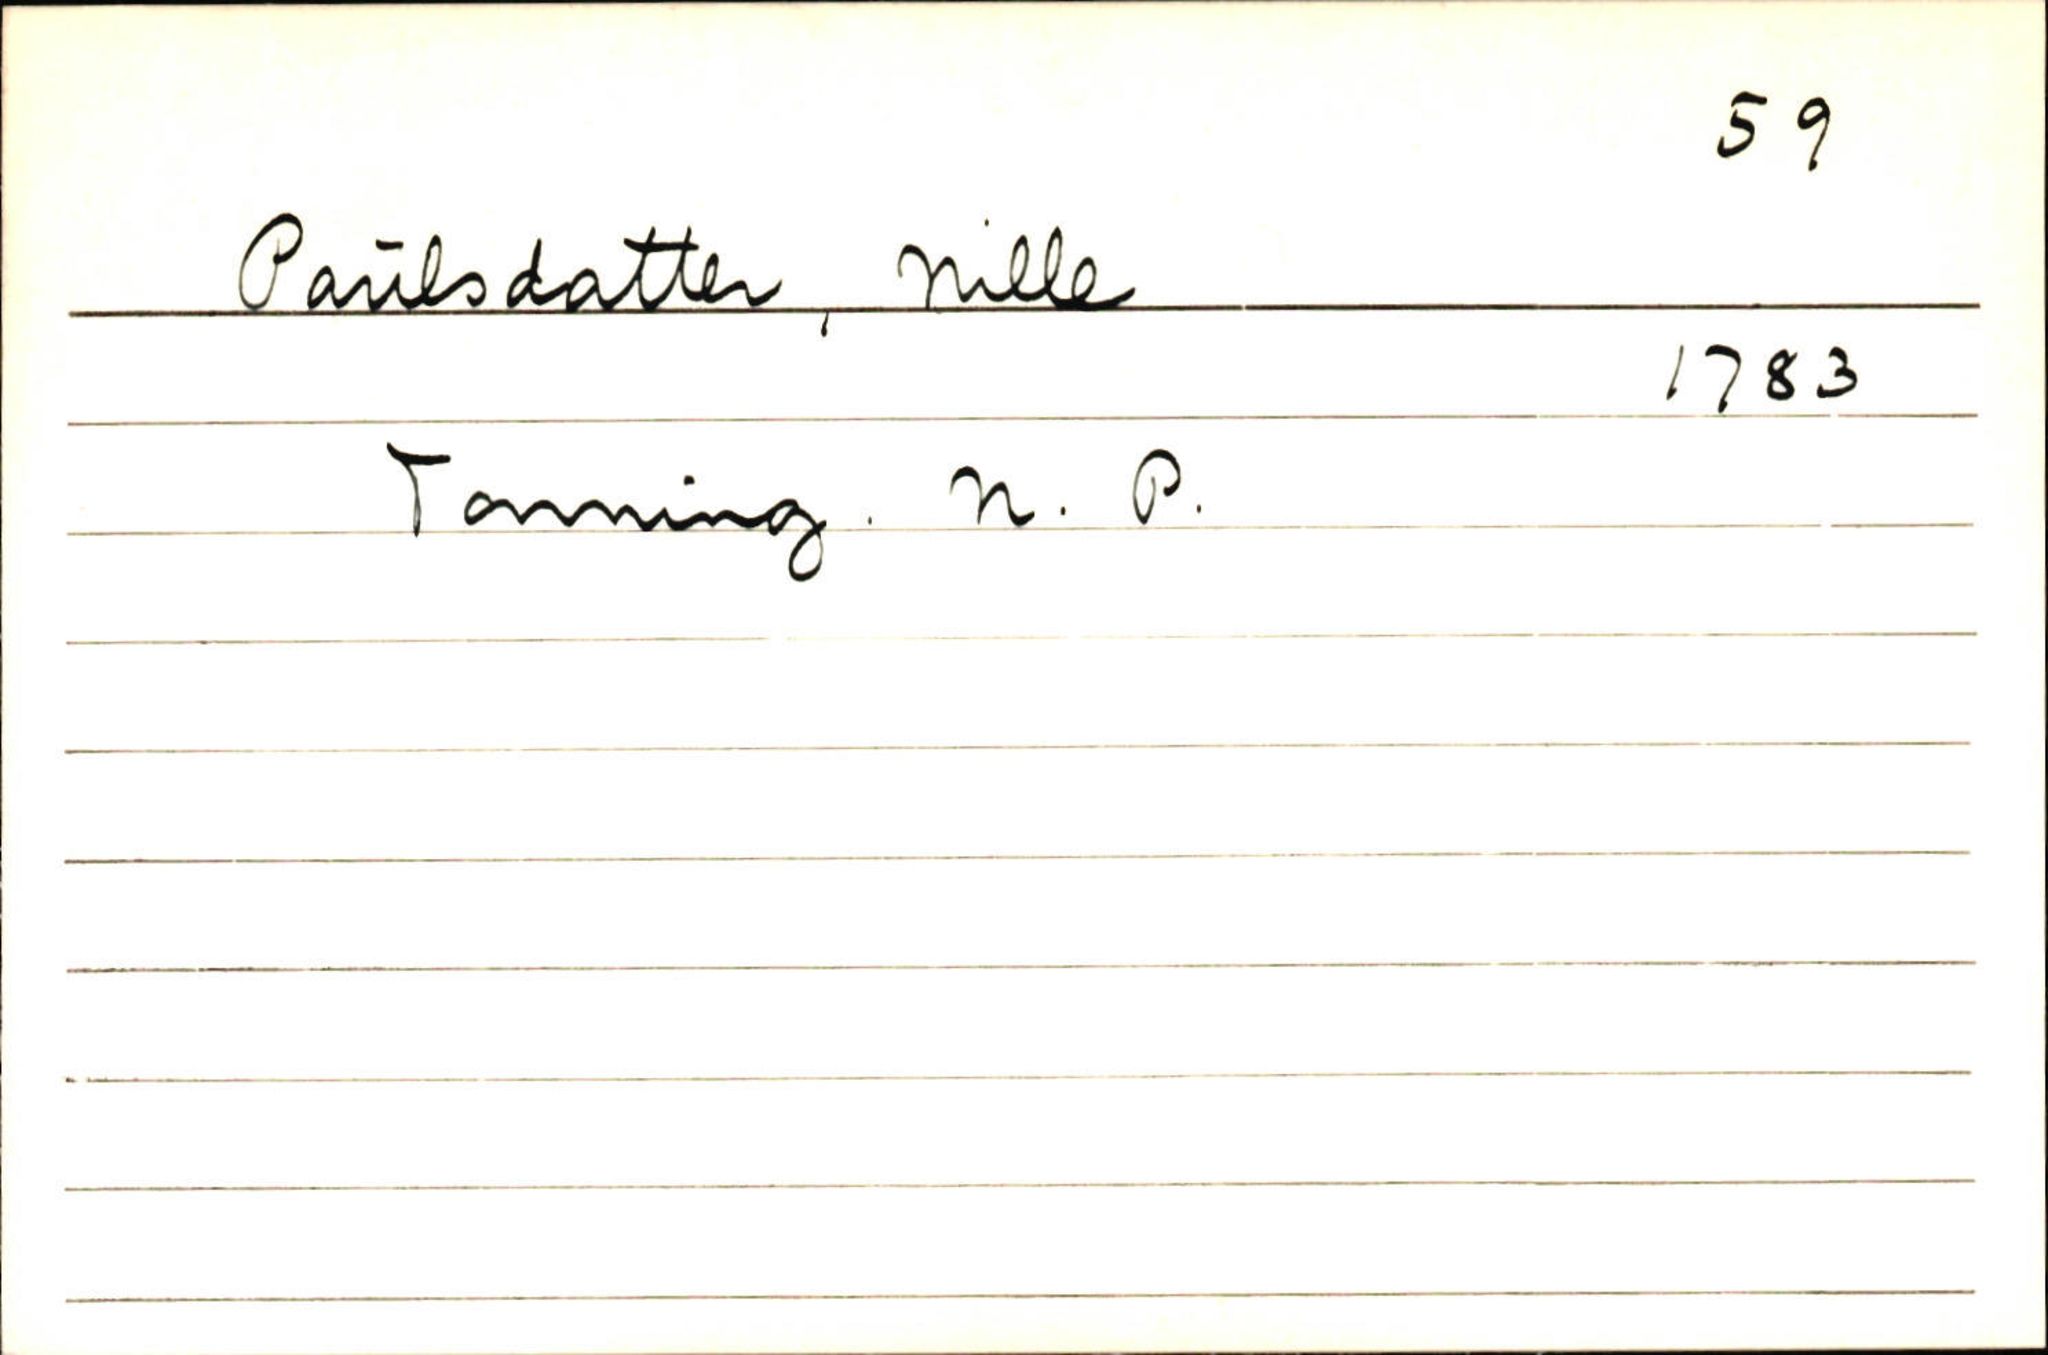 59
Paulsdatter, Nille
1783
Tonning. N. P.